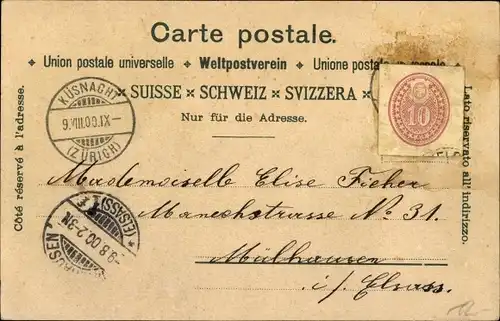 Carte postale.
Union postale universelle ✦ Weltpostverein ✦ Unione postale
SUISSE × SCHWEIZ × SVIZZERA
Nur für die Adresse.
Côté réservé à l'adresse.
Lato riservato all' indirizzo.
KÜSNACHT
9.VIII.00.IX–
(ZÜRICH)
10
Mademoiselle Elise Ficher
strasse No 31.
Mülhausen
i/ Elsass.
HAUSEN (ELSASS)
9.8.00.2-3N.